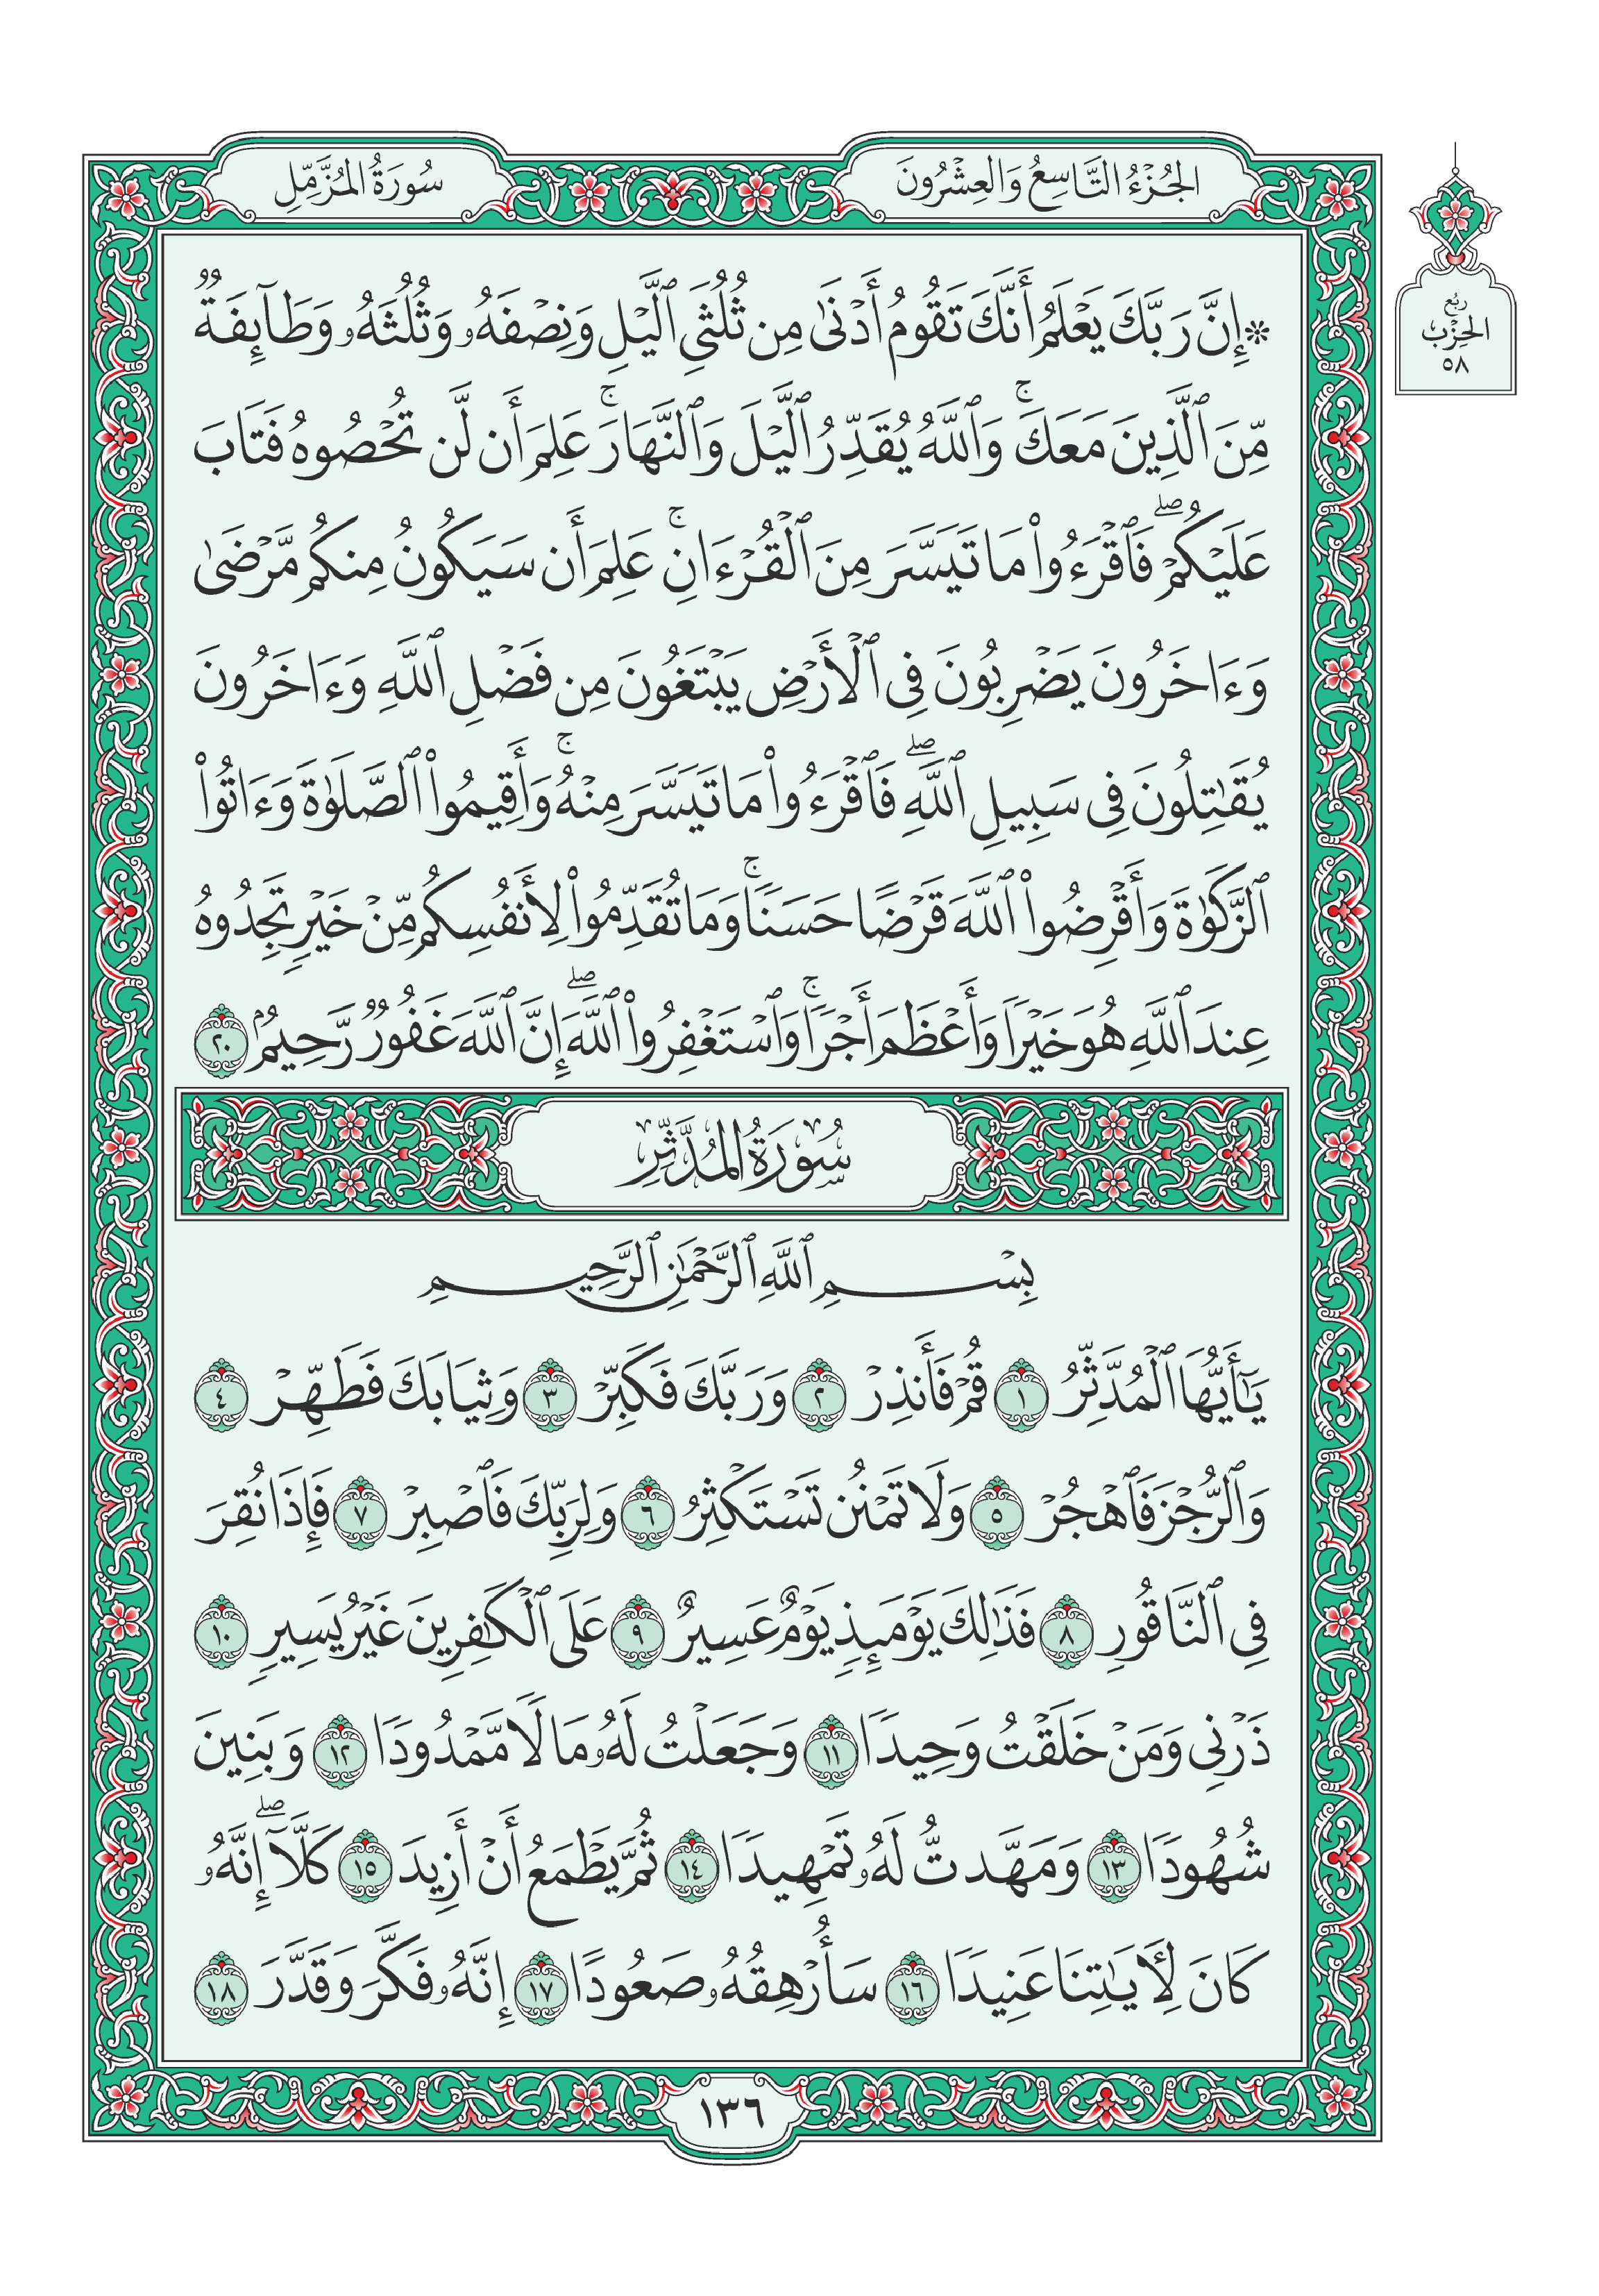 الجُزْءُ التَّاسِعُ وَالعِشْرُونَ
سُورَةُ المُزَّمِّلِ
ربُع
الحِزْب
٥٨
۞ إِنَّ رَبَّكَ يَعْلَمُ أَنَّكَ تَقُومُ أَدْنَىٰ مِن ثُلُثَيِ ٱلَّيْلِ وَنِصْفَهُۥ وَثُلُثَهُۥ وَطَآئِفَةٌ
مِّنَ ٱلَّذِينَ مَعَكَۚ وَٱللَّهُ يُقَدِّرُ ٱلَّيْلَ وَٱلنَّهَارَۚ عَلِمَ أَن لَّن تُحْصُوهُ فَتَابَ
عَلَيْكُمْۖ فَٱقْرَءُوا۟ مَا تَيَسَّرَ مِنَ ٱلْقُرْءَانِۚ عَلِمَ أَن سَيَكُونُ مِنكُم مَّرْضَىٰ
وَءَاخَرُونَ يَضْرِبُونَ فِى ٱلْأَرْضِ يَبْتَغُونَ مِن فَضْلِ ٱللَّهِ وَءَاخَرُونَ
يُقَٰتِلُونَ فِى سَبِيلِ ٱللَّهِۖ فَٱقْرَءُوا۟ مَا تَيَسَّرَ مِنْهُۚ وَأَقِيمُوا۟ ٱلصَّلَوٰةَ وَءَاتُوا۟
ٱلزَّكَوٰةَ وَأَقْرِضُوا۟ ٱللَّهَ قَرْضًا حَسَنًاۚ وَمَا تُقَدِّمُوا۟ لِأَنفُسِكُم مِّنْ خَيْرٍ تَجِدُوهُ
عِندَ ٱللَّهِ هُوَ خَيْرًا وَأَعْظَمَ أَجْرًاۚ وَٱسْتَغْفِرُوا۟ ٱللَّهَۖ إِنَّ ٱللَّهَ غَفُورٌ رَّحِيمٌۢ ٢٠
سُورَةُ المُدَّثِّرِ
بِسْمِ ٱللَّهِ ٱلرَّحْمَٰنِ ٱلرَّحِيمِ
يَٰٓأَيُّهَا ٱلْمُدَّثِّرُ ١ قُمْ فَأَنذِرْ ٢ وَرَبَّكَ فَكَبِّرْ ٣ وَثِيَابَكَ فَطَهِّرْ ٤
وَٱلرُّجْزَ فَٱهْجُرْ ٥ وَلَا تَمْنُن تَسْتَكْثِرُ ٦ وَلِرَبِّكَ فَٱصْبِرْ ٧ فَإِذَا نُقِرَ
فِى ٱلنَّاقُورِ ٨ فَذَٰلِكَ يَوْمَئِذٍ يَوْمٌ عَسِيرٌ ٩ عَلَى ٱلْكَٰفِرِينَ غَيْرُ يَسِيرٍ ١٠
ذَرْنِى وَمَنْ خَلَقْتُ وَحِيدًا ١١ وَجَعَلْتُ لَهُۥ مَالًا مَّمْدُودًا ١٢ وَبَنِينَ
شُهُودًا ١٣ وَمَهَّدتُّ لَهُۥ تَمْهِيدًا ١٤ ثُمَّ يَطْمَعُ أَنْ أَزِيدَ ١٥ كَلَّآۖ إِنَّهُۥ
كَانَ لِأَيَٰتِنَا عَنِيدًا ١٦ سَأُرْهِقُهُۥ صَعُودًا ١٧ إِنَّهُۥ فَكَّرَ وَقَدَّرَ ١٨
١٣٦